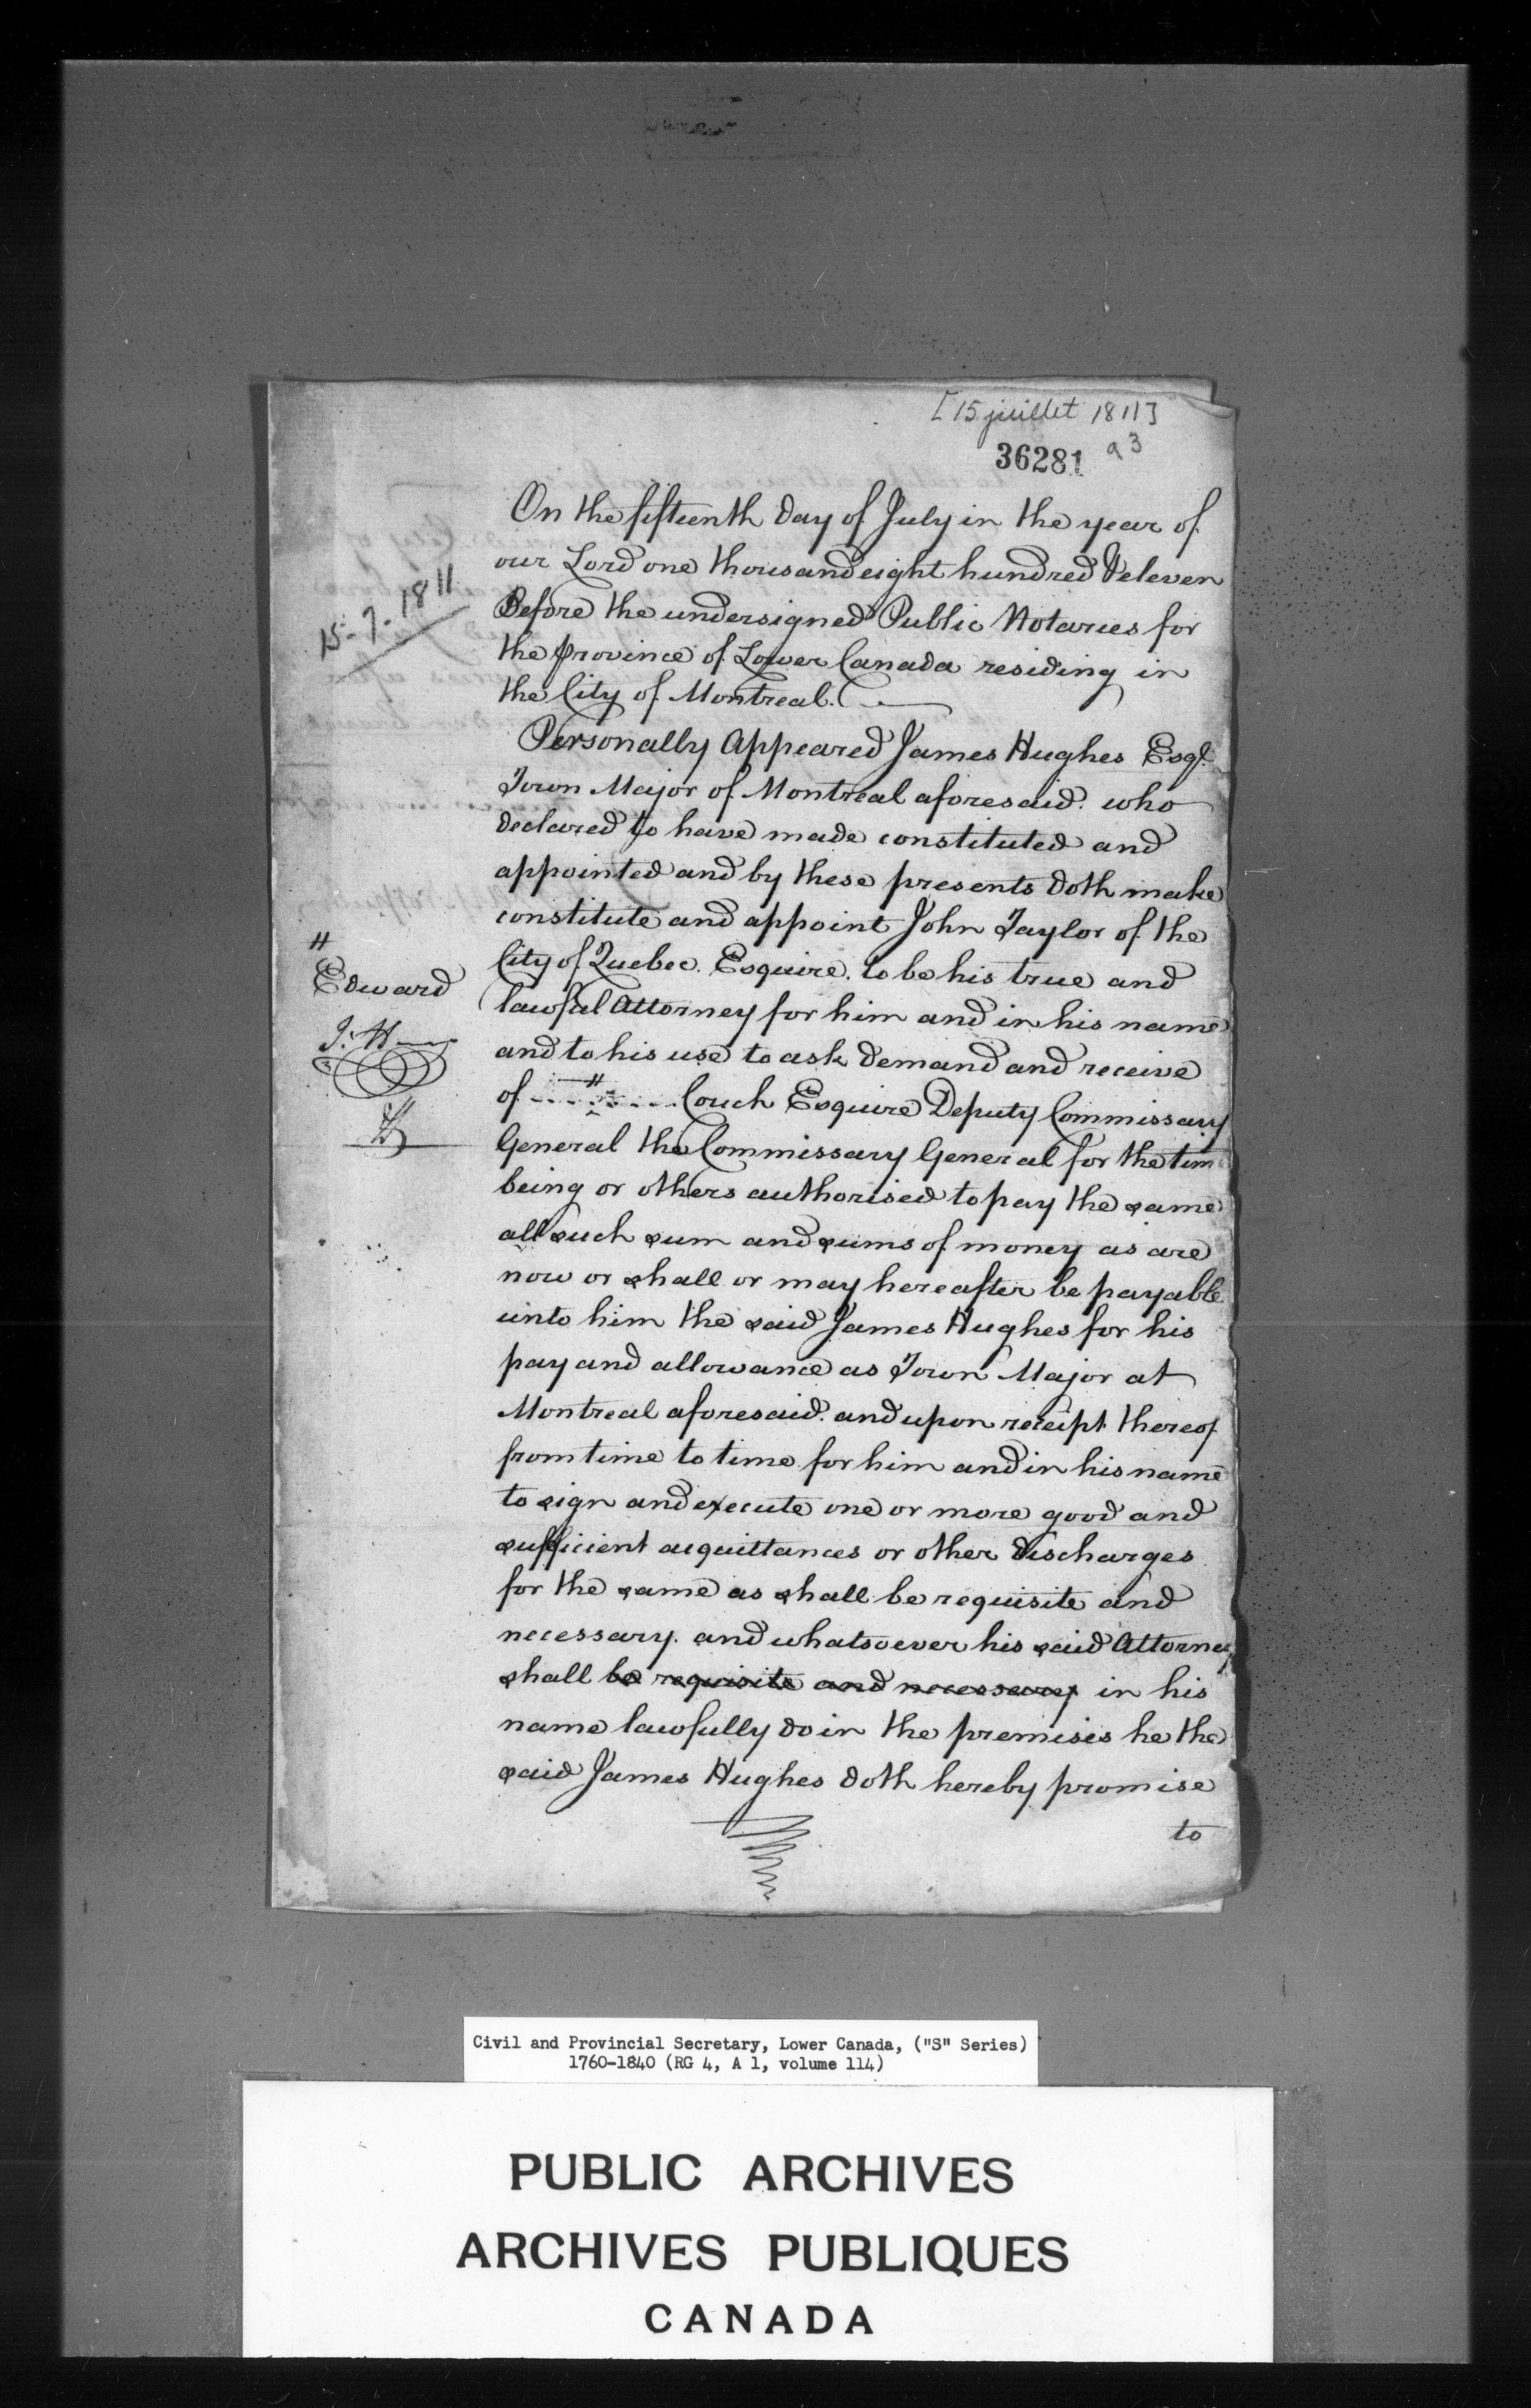 [15 juillet 1811]
36281 a3
On the fifteenth day of July in the year of
our Lord one thousand eight hundred & eleven
15-7-1811
Before the undersigned Public Notaries for
the Province of Lower Canada residing in
the City of Montreal.
Personally Appeared James Hughes Esqr.
Town Major of Montreal aforesaid. who
declared to have made constituted and
appointed and by these presents doth make
constitute and appoint John Taylor of the
City of Quebec. Esquire. to be his true and
lawful Attorney for him and in his name
and to his use to ask demand and receive
of # Couch Esquire Deputy Commissary
#
Edward
J. H
General the Commissary General for the time
being or others authorised to pay the same
all such sum and sums of money as are
now or shall or may hereafter be payable
unto him the said James Hughes for his
pay and allowance as Town Major at
Montreal aforesaid. and upon receipt thereof
from time to time for him and in his name
to sign and execute one or more good and
sufficient acquittances or other discharges
for the same as shall be requisite and
necessary. and whatsoever his said Attorney
shall be requisite and necessary in his
name lawfully do in the premises he the
said James Hughes doth hereby promise
to
Civil and Provincial Secretary, Lower Canada, ("S" Series)
1760-1840 (RG 4, A 1, volume 114)
PUBLIC ARCHIVES
ARCHIVES PUBLIQUES
CANADA